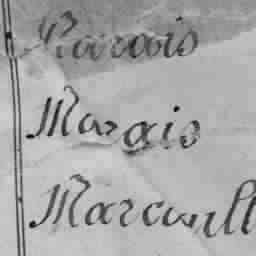 Marais
Marais
Marcoull